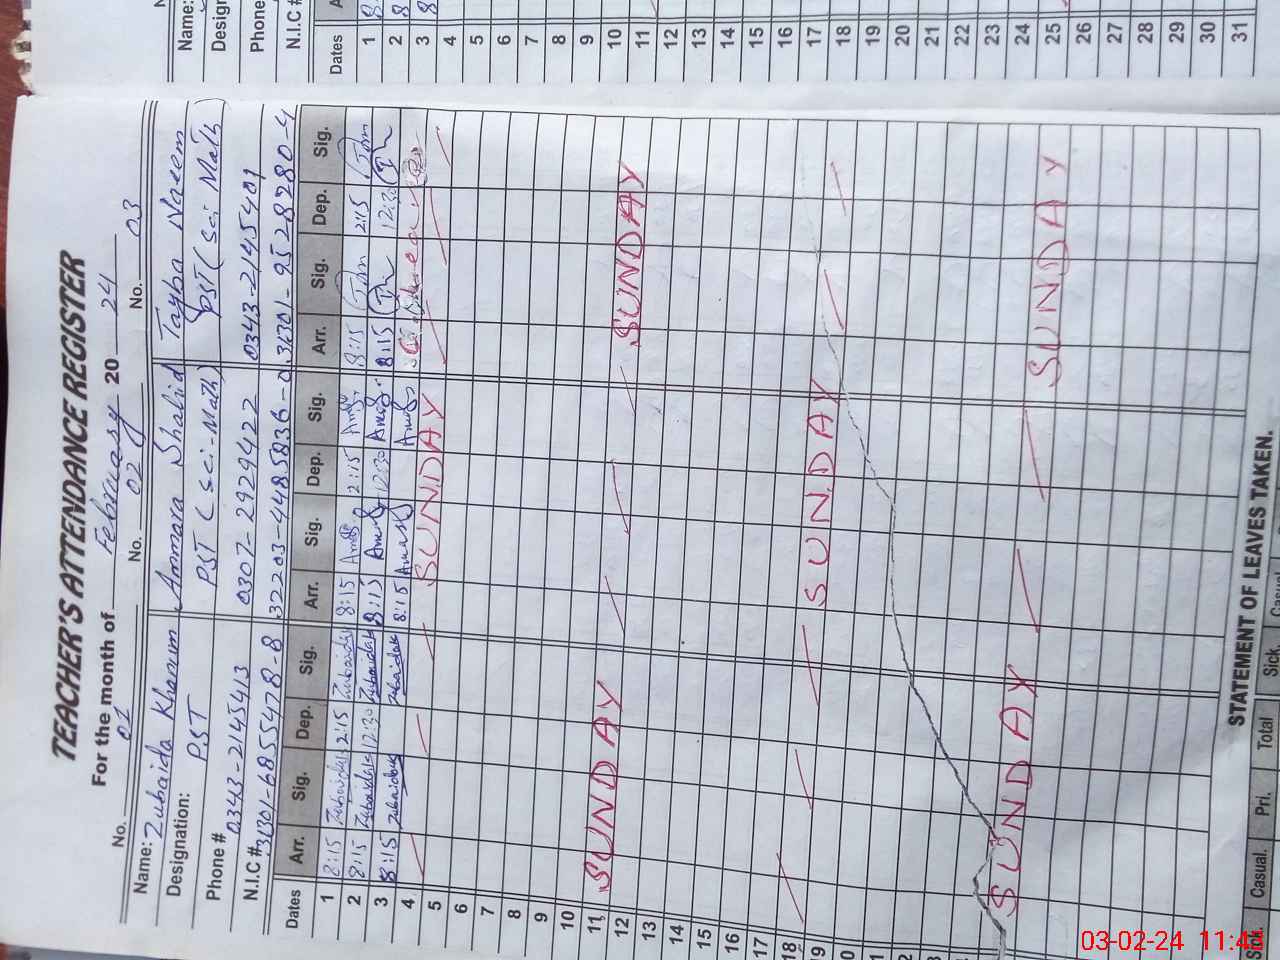 TEACHER'S ATTENDANCE REGISTER
For the month of February 20 24
No. 01 No. 02 No. 03
Name: Zubaida Khanum Ammara Shahid Tayba Naeem
Designation: PST PST (Sci-Math) PST (Sci Math)
Phone # 0343-2145413 0307-2929422 0343-2145401
N.I.C # 31301-6855478-8 32203-4485836-0 31301-9528280-4
Dates Arr. Sig. Dep. Sig. Arr. Sig. Dep. Sig. Arr. Sig. Dep. Sig.
1 8:15 Zubaida 2:15 Zubaida 8:15 2:15 8:15 2:15
2 8:15 Zubaida 12:30 Zubaida 8:15 12:30 8:15 12:30
3 8:15 Zubaida Zubaida 8:15
4 SUNDAY
5
6
7
8
9
10
11 SUNDAY SUNDAY
12
13
14
15
16
17
18 SUNDAY
19
SUNDAY SUNDAY
STATEMENT OF LEAVES TAKEN.
Sick. Casual. Pri. Total Sick. Casual
Name:
Phone
N.I.C #
Dates
1 8
2 8
3 8
4
5
6
7
8
9
10
11
12
13
14
15
16
17
18
19
20
21
22
23
24
25
26
27
28
29
30
31
03-02-24